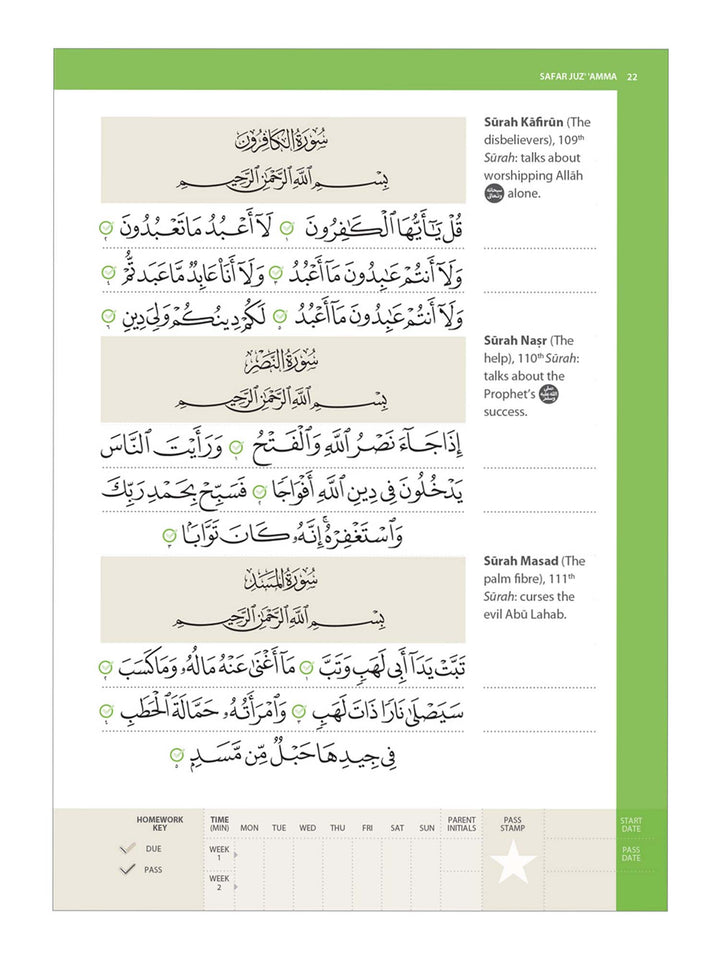 SAFAR JUZ' 'AMMA 22
سُورَةُ الكَافِرُونَ
بِسْمِ ٱللَّهِ ٱلرَّحْمَٰنِ ٱلرَّحِيمِ
قُلْ يَٰٓأَيُّهَا ٱلْكَٰفِرُونَ لَآ أَعْبُدُ مَا تَعْبُدُونَ
وَلَآ أَنتُمْ عَٰبِدُونَ مَآ أَعْبُدُ وَلَآ أَنَا۠ عَابِدٌ مَّا عَبَدتُّمْ
وَلَآ أَنتُمْ عَٰبِدُونَ مَآ أَعْبُدُ لَكُمْ دِينُكُمْ وَلِىَ دِينِ
Sūrah Kāfirūn (The
disbelievers), 109th
Sūrah: talks about
worshipping Allāh
سبحانه وتعالى alone.
سُورَةُ النَّصْرِ
بِسْمِ ٱللَّهِ ٱلرَّحْمَٰنِ ٱلرَّحِيمِ
إِذَا جَآءَ نَصْرُ ٱللَّهِ وَٱلْفَتْحُ وَرَأَيْتَ ٱلنَّاسَ
يَدْخُلُونَ فِى دِينِ ٱللَّهِ أَفْوَاجًا فَسَبِّحْ بِحَمْدِ رَبِّكَ
وَٱسْتَغْفِرْهُ ۚ إِنَّهُۥ كَانَ تَوَّابًۢا
Sūrah Naṣr (The
help), 110th Sūrah:
talks about the
Prophet's صلى الله عليه وسلم
success.
سُورَةُ المَسَدِ
بِسْمِ ٱللَّهِ ٱلرَّحْمَٰنِ ٱلرَّحِيمِ
تَبَّتْ يَدَآ أَبِى لَهَبٍ وَتَبَّ مَآ أَغْنَىٰ عَنْهُ مَالُهُۥ وَمَا كَسَبَ
سَيَصْلَىٰ نَارًا ذَاتَ لَهَبٍ وَٱمْرَأَتُهُۥ حَمَّالَةَ ٱلْحَطَبِ
فِى جِيدِهَا حَبْلٌ مِّن مَّسَدٍۭ
Sūrah Masad (The
palm fibre), 111th
Sūrah: curses the
evil Abū Lahab.
HOMEWORK KEY
DUE
PASS
TIME (MIN) MON TUE WED THU FRI SAT SUN PARENT INITIALS PASS STAMP START DATE
WEEK 1 PASS DATE
WEEK 2